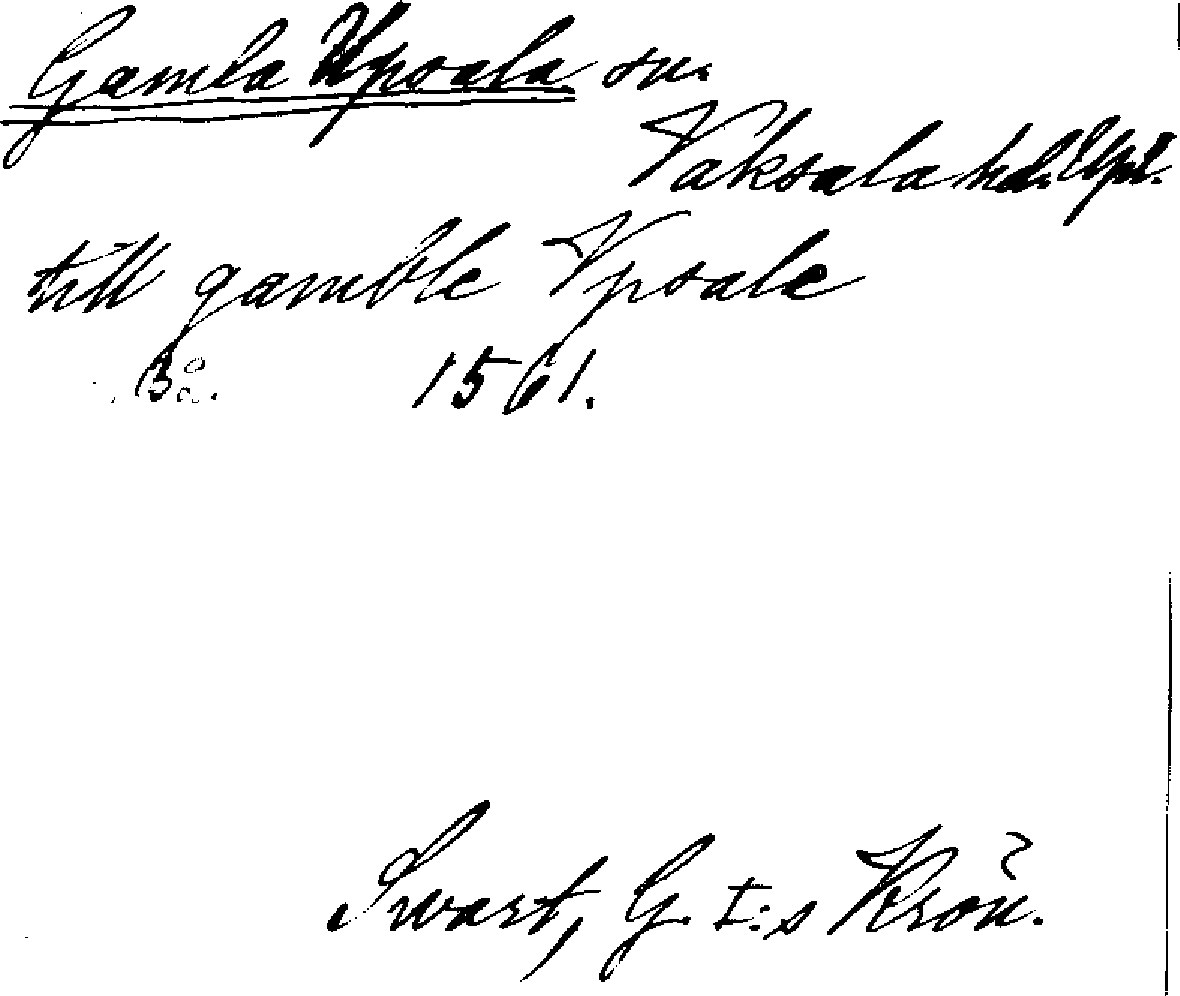 Gamla Upsala sn.
Vaksala hd. Upl.
till gamble Vpsale
1561.
Swart, G. I:s Krön.